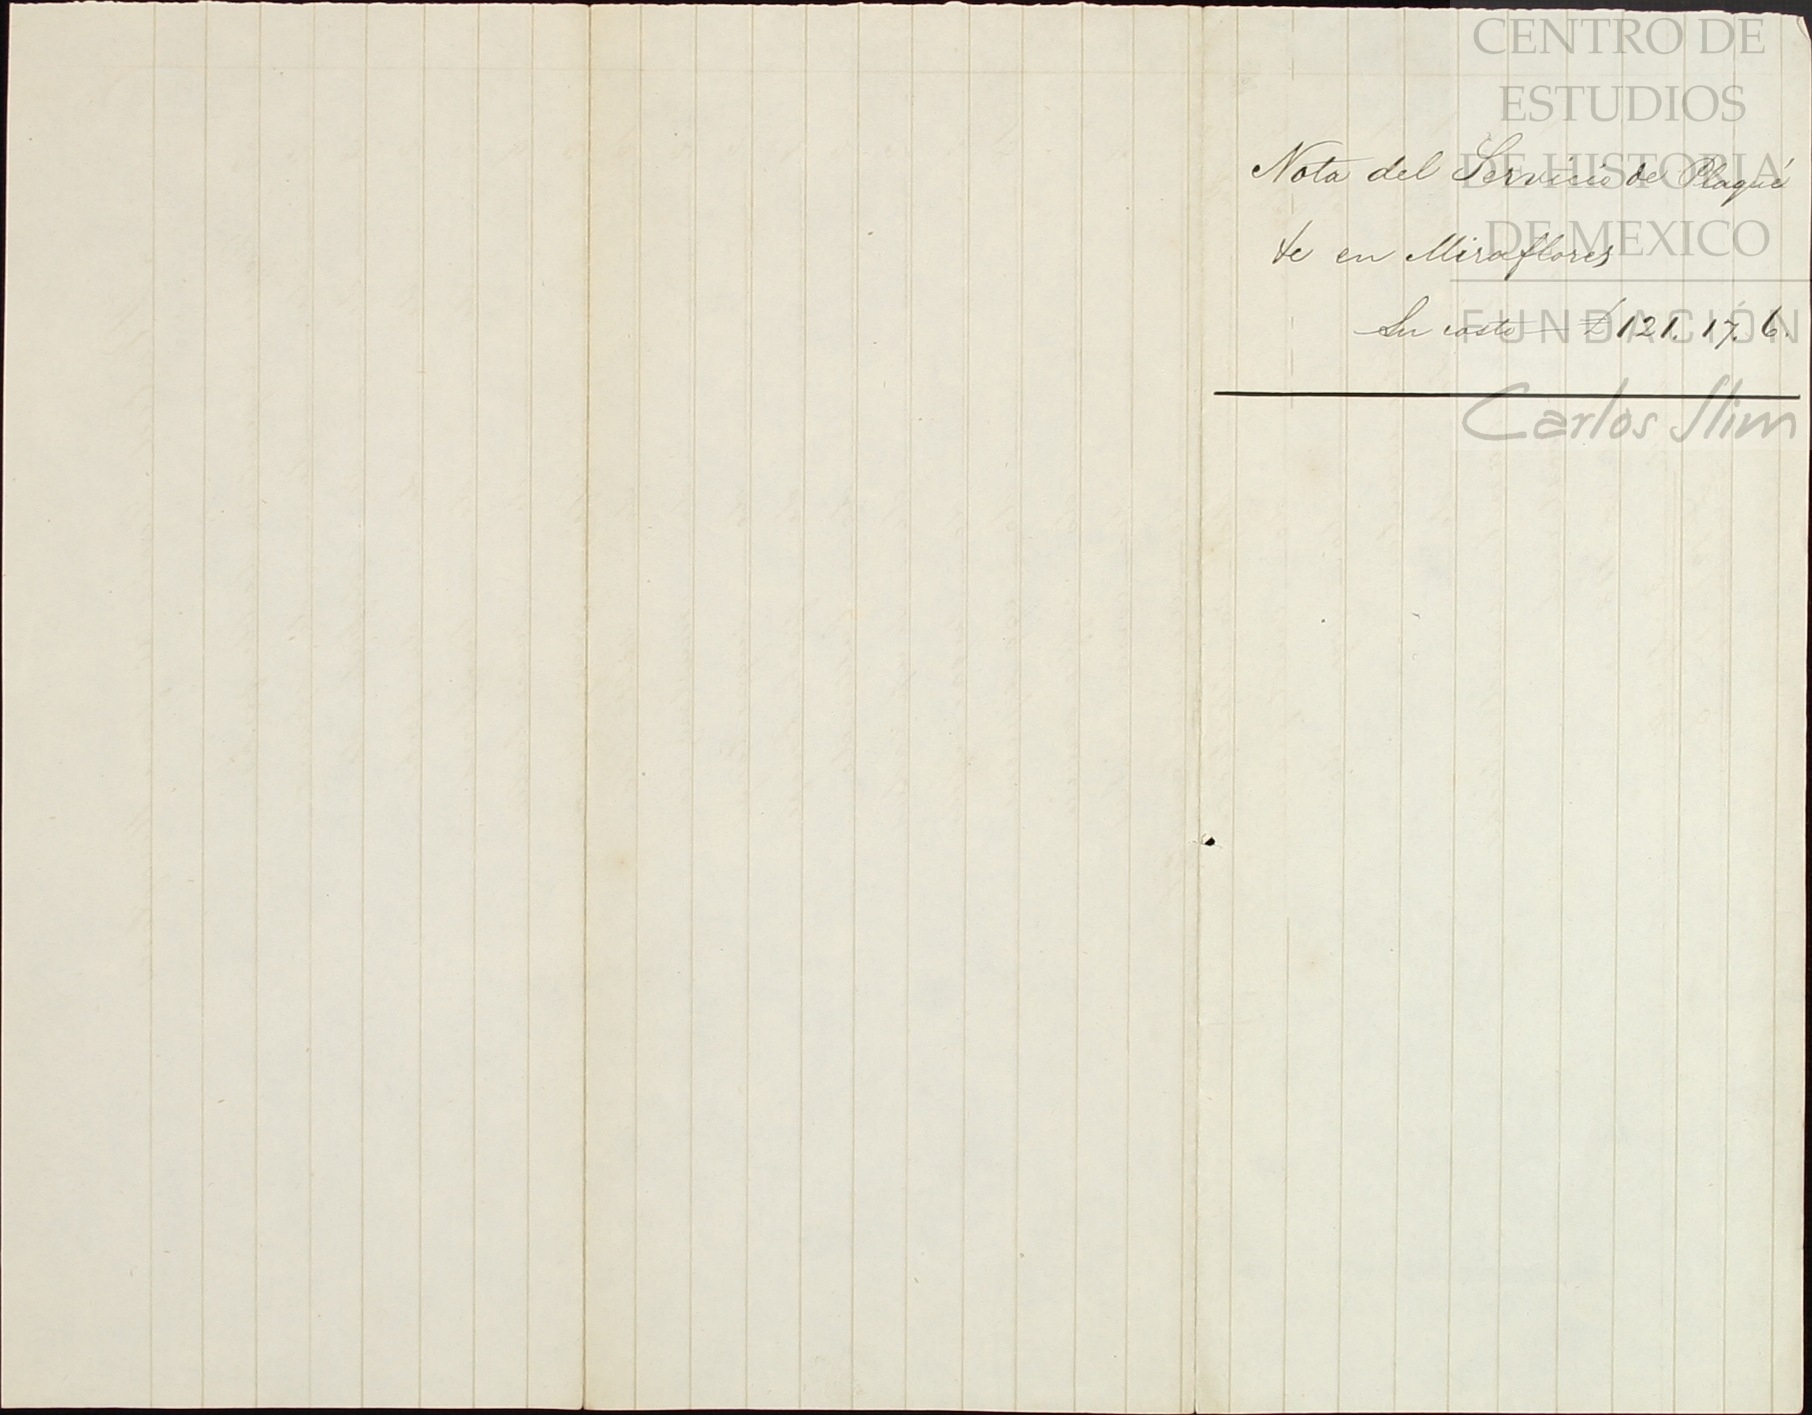 CENTRO DE
ESTUDIOS
DE HISTORIA
DE MEXICO
FUNDACIÓN
Carlos Slim
Nota del Servicio de Plaqué
&c en Miraflores
Su costo — £121.17.6.